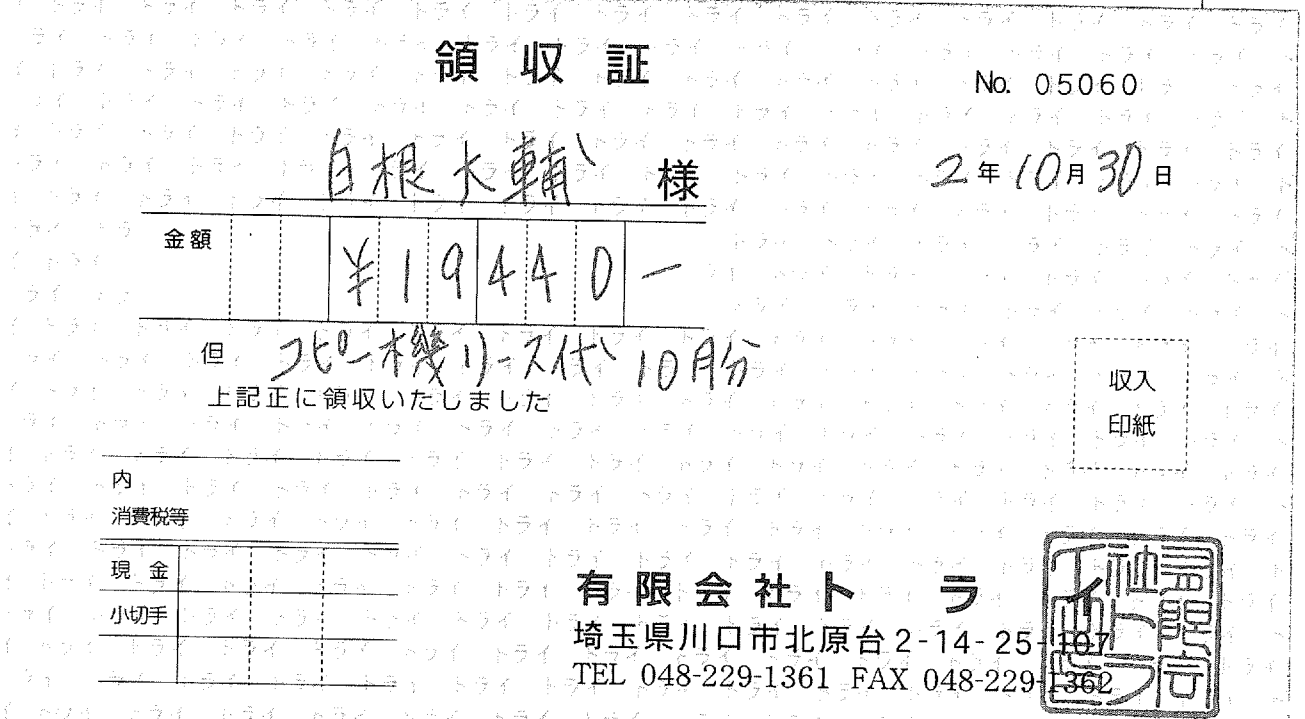 領収証
No. 05060
白根大輔 様
2年10月30日
金額 ¥19440-
但 コピー機リース代 10月分
上記正に領収いたしました
収入
印紙
内
消費税等
現金
小切手
有限会社トライ
埼玉県川口市北原台2-14-25-107
TEL 048-229-1361 FAX 048-229-1362
有限会社トライ